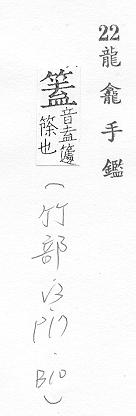 22 龍龕手鑑
篕
音盍籧
篨也
(竹部·V3·P17·B10)